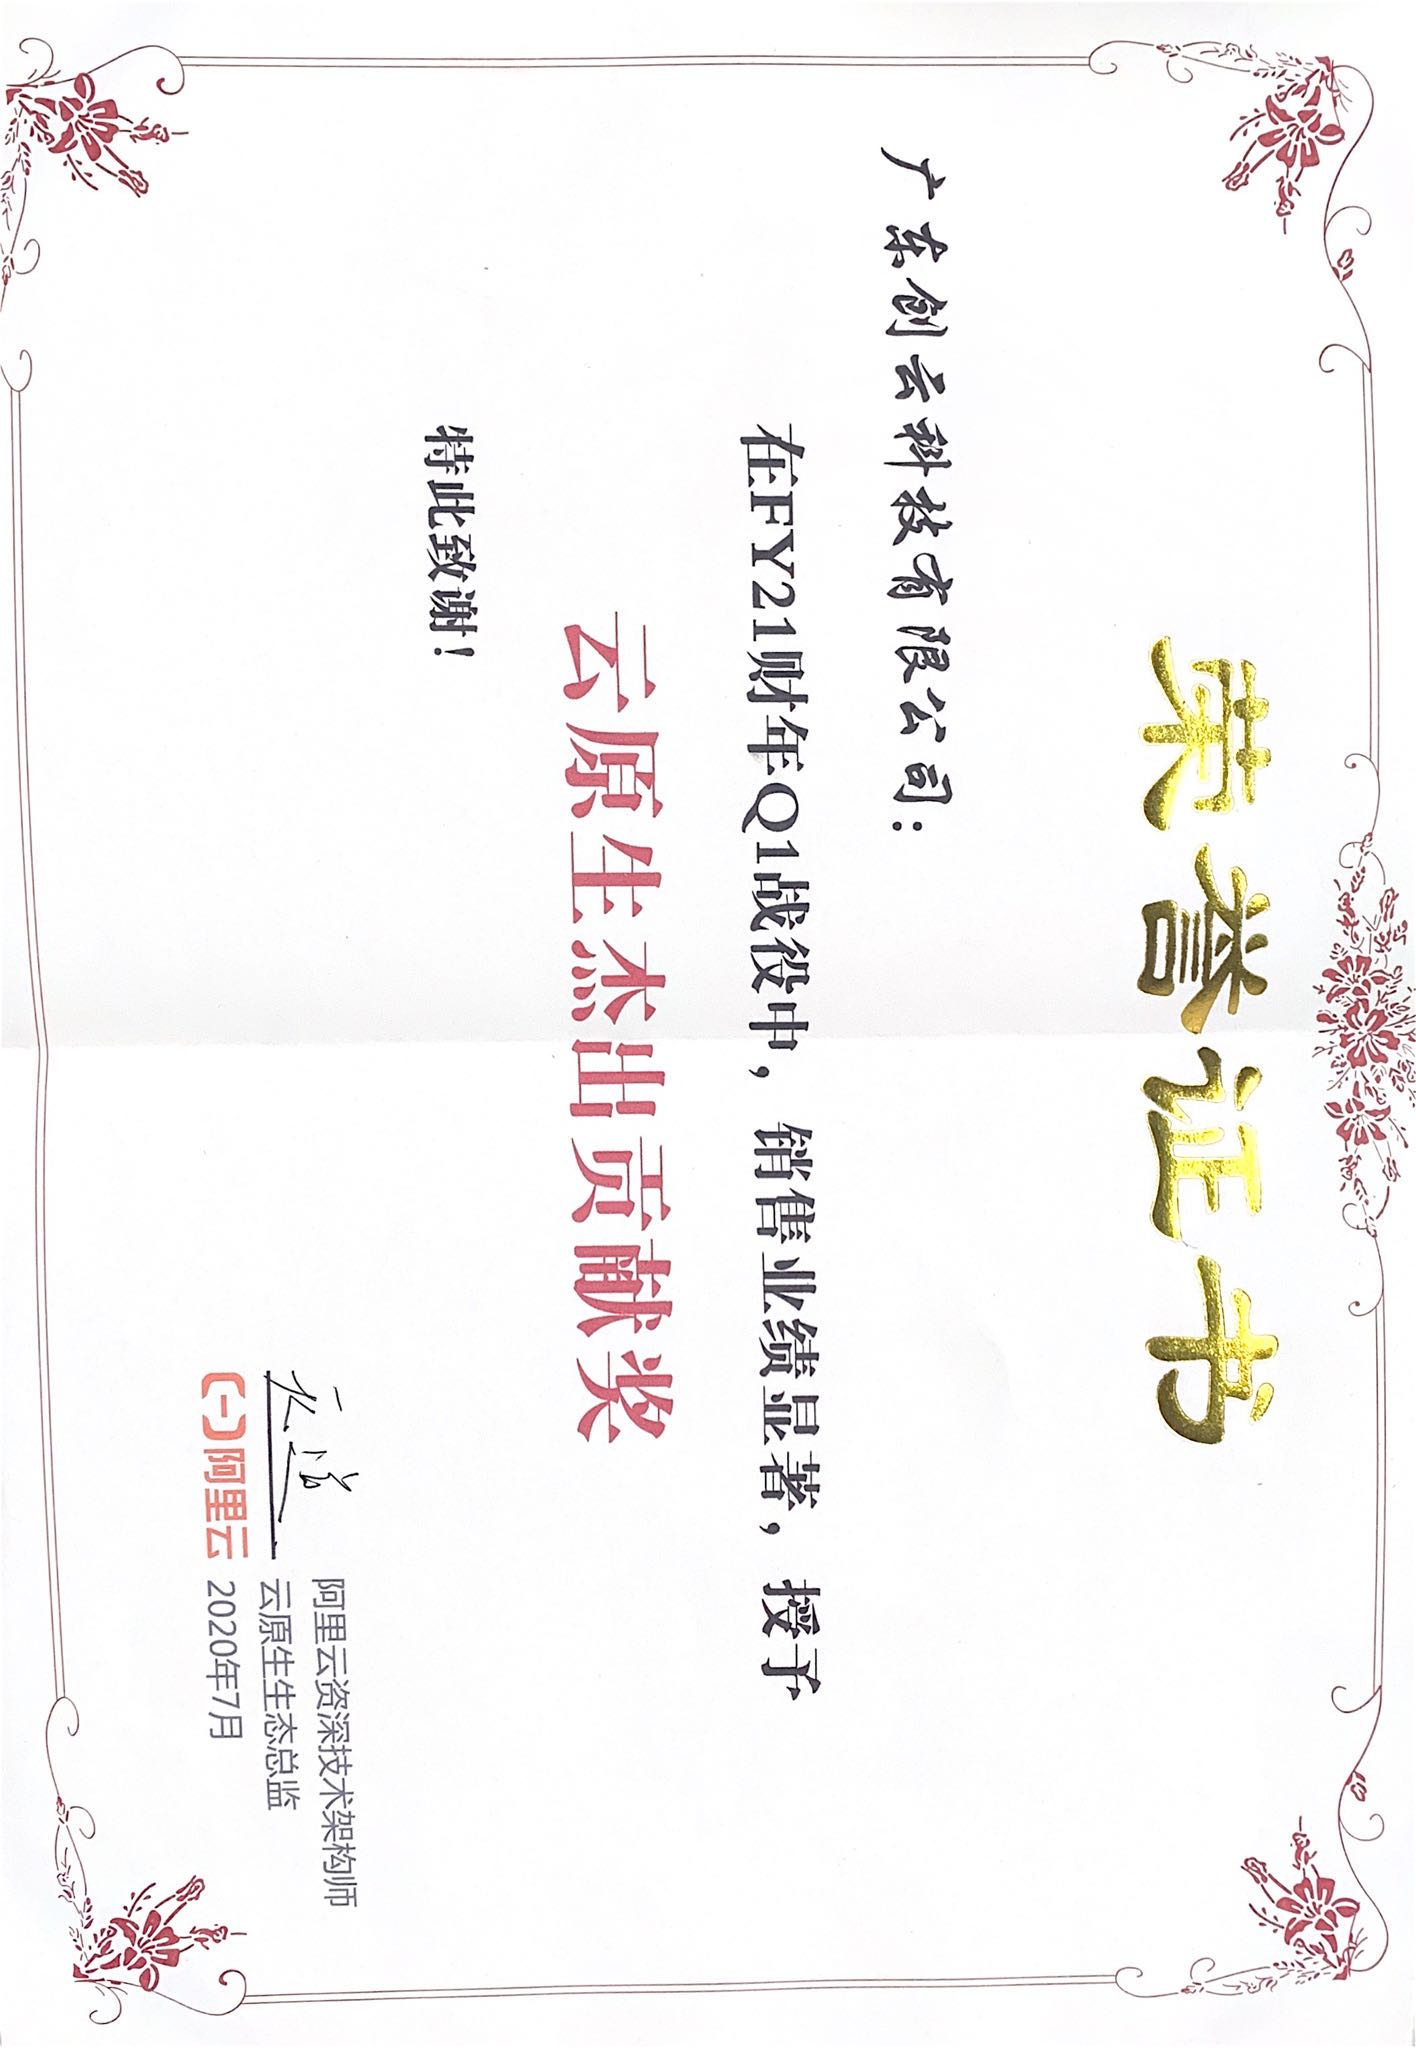 荣誉证书
广东创云科技有限公司：
在FY21财年Q1战役中，销售业绩显著，授予
云原生杰出贡献奖
特此致谢！
阿里云资深技术架构师
云原生生态总监
阿里云 2020年7月